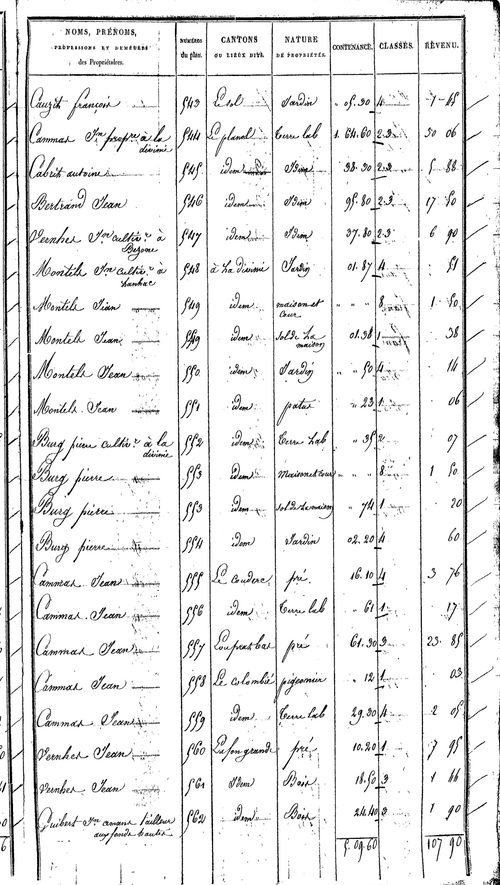 NOMS, PRÉNOMS, PROFESSIONS ET DEMEURES des Propriétaires. NUMÉROS du plan. CANTONS OU LIEUX DITS. NATURE DE PROPRIÉTÉS. CONTENANCE. CLASSES. REVENU.
françois 543 Le sol Jardin 05.30 4 1 45
Cammas Jn propre à la divinie 544 Le planal Terre lab 1.64.60 2.3 50 06
Cabrit antoine 545 idem Idem 38.30 2.3 5 88
Bertrand Jean 546 idem Idem 95.80 2.3 17 50
Vernhes Jn cultivr à 547 idem Idem 37.80 2.3 6 90
Montels Jn cultivr à 548 à La divinie Jardin 01.87 4 51
Montels Jean 549 idem maison et cour " " " 8 1 50
Montels Jean 549 idem sol de La maison 01.38 1 38
Montels Jean 550 idem Jardin " 50 4 14
Montels Jean 551 idem patus " 23 1 06
Burg pierre cultivr à la divinie 552 idem Terre Lab " 35 2 07
Burg pierre 553 idem Maison et cour " " " 8 1 50
Burg pierre 553 idem sol de la maison " 74 1 20
Burg pierre 554 idem Jardin 02.20 4 60
Cammas Jean 555 Le Couderc pré 16.10 4 3 76
Cammas Jean 556 idem Terre lab " 61 1 17
Cammas Jean 557 Lou prat bas pré 61.30 3 23 85
Cammas Jean 558 Le Colombié pigeonier " 12 1 03
Cammas Jean 559 idem Terre lab 29.30 4 2 05
Vernhes Jean 560 La fon grande pré 10.20 1 7 95
Vernhes Jean 561 Idem Bois 18.50 3 1 66
Guibert Jn tailleur aux fonds hautes 562 idem Bois 24.40 3 1 90
5.09.60 107 90